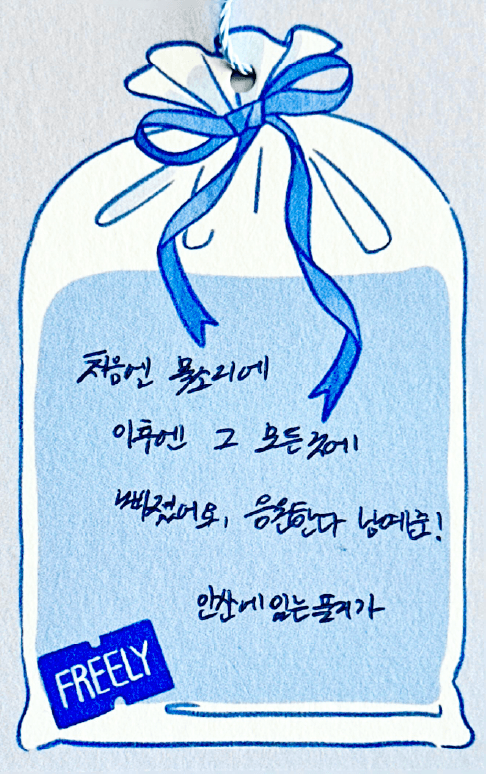 처음엔 목소리에
이후엔 그 모든 것에
빠졌어요, 응원한다 남예준!
안산에 있는 플리가
FREELY